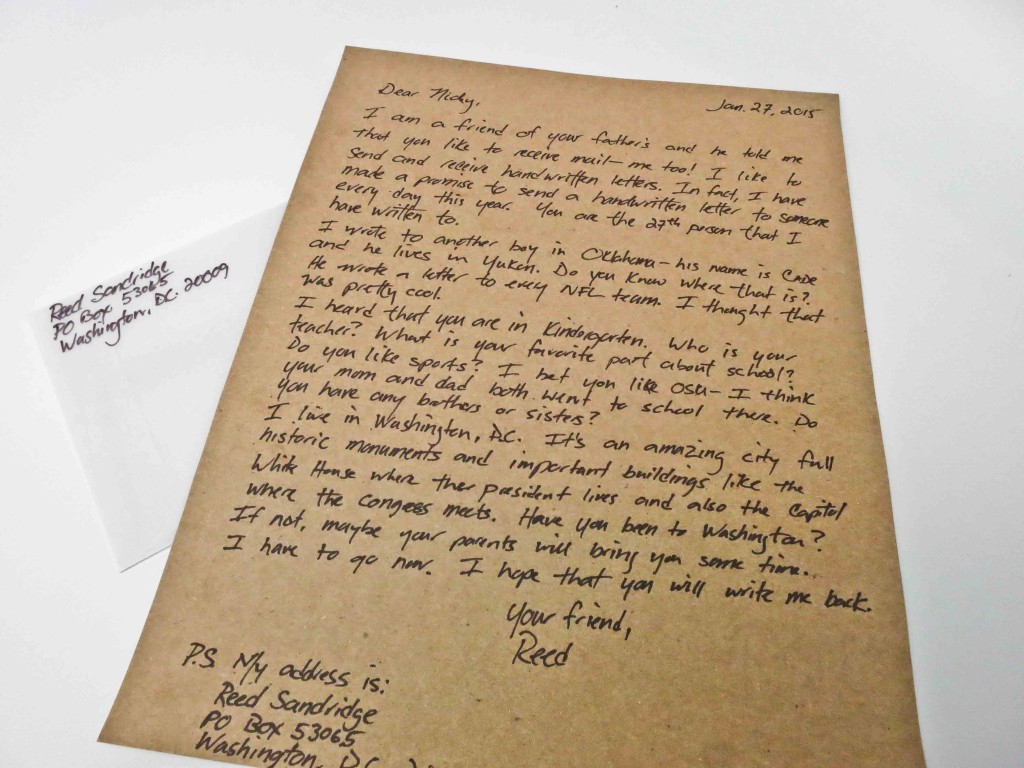 Reed Sandridge
PO Box 53065
Washington, DC. 20009
Jan. 27, 2015
Dear Nicky,
I am a friend of your father's and he told me
that you like to receive mail—me too! I like to
send and receive handwritten letters. In fact, I have
made a promise to send a handwritten letter to someone
every day this year. You are the 27th person that I
have written to.
I wrote to another boy in Oklahoma—his name is Cade
and he lives in Yukon. Do you know where that is?
He wrote a letter to every NFL team. I thought that
was pretty cool.
I heard that you are in Kindergarten. Who is your
teacher? What is your favorite part about school?
Do you like sports? I bet you like OSU—I think
your mom and dad both went to school there. Do
you have any brothers or sisters?
I live in Washington, D.C. It's an amazing city full
historic monuments and important buildings like the
White House where ther president lives and also the Capitol
where the congess meets. Have you been to Washington?
If not, maybe your parents will bring you some time.
I have to go now. I hope that you will write me back.
Your friend,
Reed
P.S My address is:
Reed Sandridge
PO Box 53065
Washington, D.C. 2